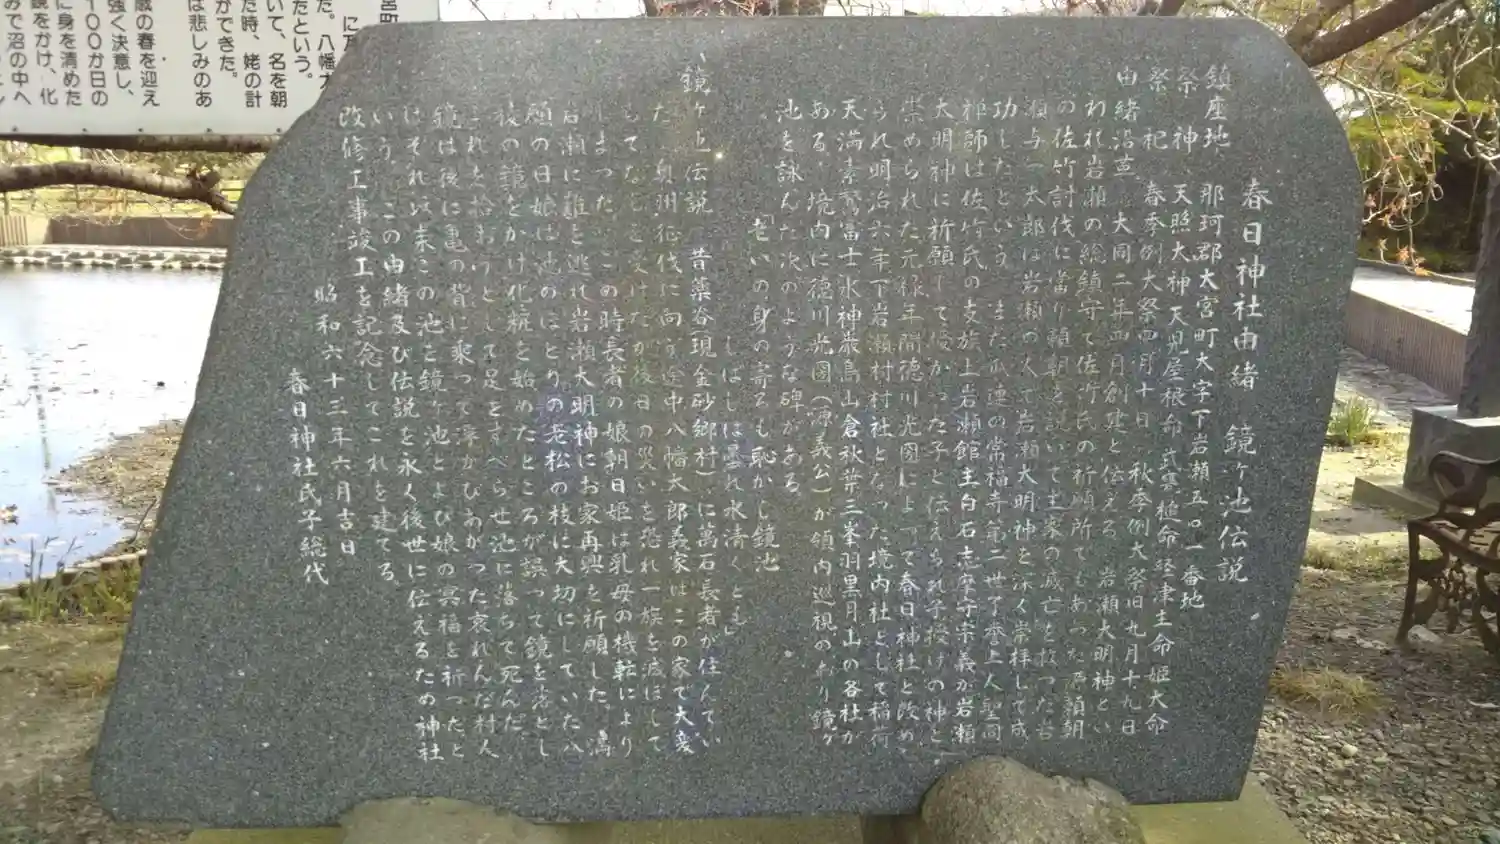 春日神社由緒 鏡ヶ池伝説
鎮座地 那珂郡大宮町大字下岩瀬五〇一番地
祭神 天照大神 天児屋根命 武甕槌命 経津主命 姫大命
祭祀 春季例大祭四月十日 秋季例大祭旧九月十九日
由緒沿革 大同二年四月創建と伝える 岩瀬大明神とい
われ岩瀬の総鎮守で佐竹氏の祈願所でもあった 源頼朝
の佐竹討伐に當り頼朝を説いて主家の滅亡を救ったち
瀬与一太郎は岩瀬の人で岩瀬大明神を深く崇拝して成
功したという また瓜連の常福寺第二世了誉上人聖冏
禅師は佐竹氏の支族上岩瀬館主白石志摩守宗義が岩瀬
大明神に祈願して授かった子と伝えられ子授けの神と
崇められた 元禄年間徳川光圀によって春日神社と改め
られ明治六年下岩瀬村村社となった 境内社として稲荷
天満素鵞富士水神厳島山倉秋葉三峯羽黒月山の各社が
ある 境内に徳川光圀(源義公)が領内巡視のおり鏡ヶ
池を詠んだ次のような碑がある
「老いの身の寄るも恥かし鏡池
しばしは曇れ水清くとも」
鏡ヶ池伝説 昔薬谷(現金砂郷村)に萬石長者が住んでい
た 奥州征伐に向う途中八幡太郎義家はこの家で大変
もてなしを受けたが後日の災いを恐れ一族を滅ぼして
しまった この時長者の娘朝日姫は乳母の機転により
岩瀬に難を逃れ岩瀬大明神にお家再興を祈願した 満
願の日娘は池のほとりの老松の枝に大切にしていた八
稜の鏡をかけ化粧を始めたところが誤って鏡を落とし
これを拾おうとして足をすべらせ池に落ちて死んだ
鏡は後に亀の背に乗って浮かびあがった 哀れんだ村人
はそれ以来この池を鏡ヶ池とよび娘の冥福を祈ったと
いう この由緒及び伝説を永く後世に伝えるため神社
改修工事竣工を記念してこれを建てる
昭和六十三年六月吉日
春日神社氏子総代
た。八幡太
たという。
いて、名を朝
た時、姥の計
ができた。
は悲しみのあ
歳の春を迎え
強く決意し、
100か日の
に身を清めた
鏡をかけ、化
みで沼の中へ